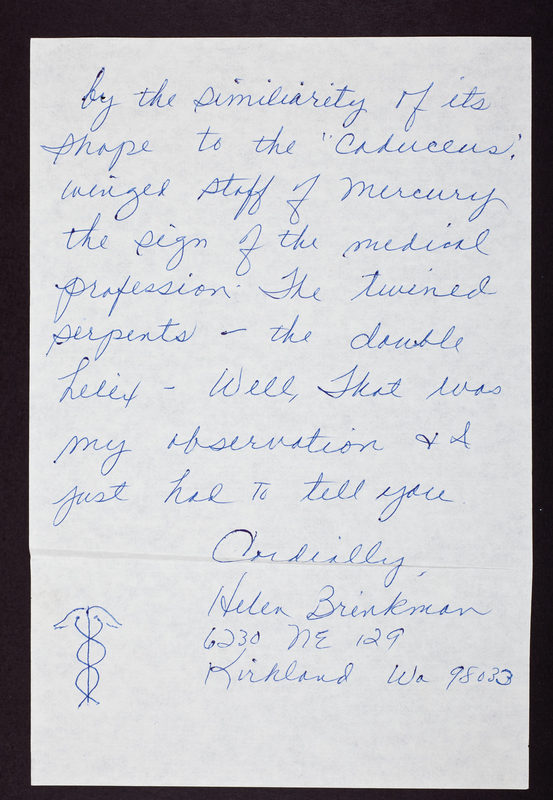 by the similiarity of its
shape to the "Caduceus",
winged staff of Mercury
the sign of the medical
profession. The twined
serpents – the double
helix – Well, That was
my observation & I
just had to tell you
Cordially,
Helen Brinkman
6230 NE 129
Kirkland Wa 98033